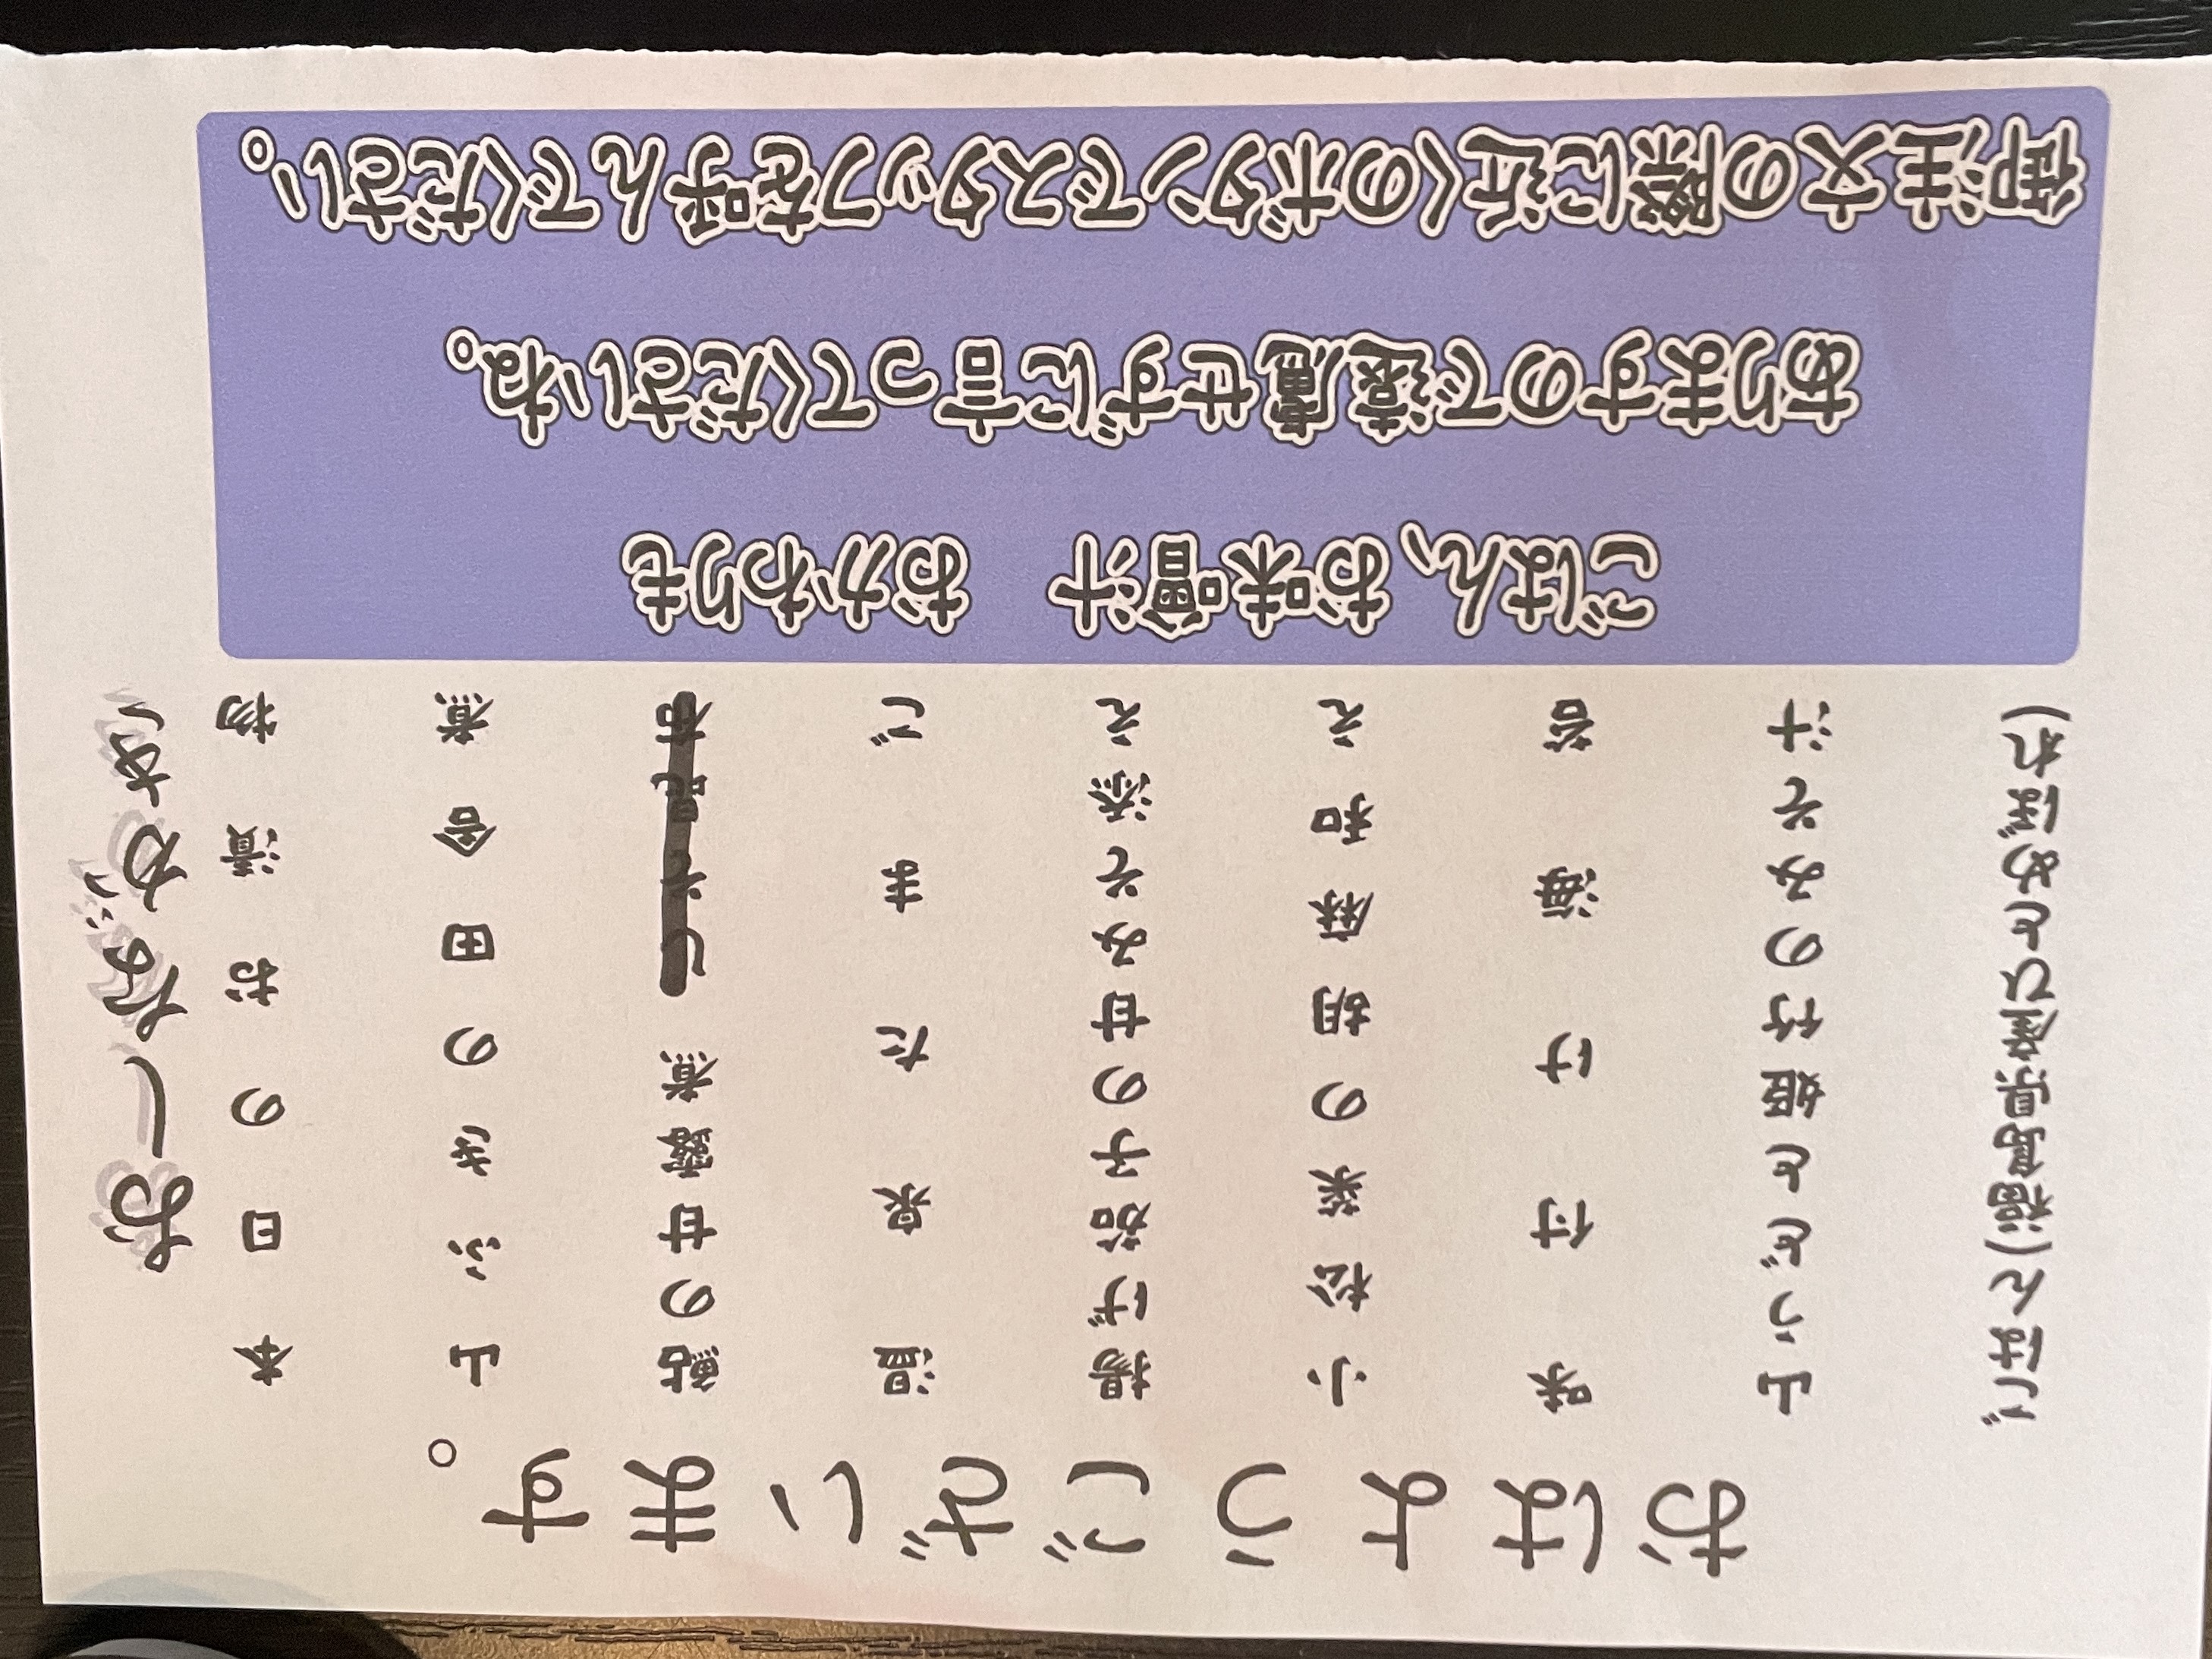 おはようございます。
おしながき
本日のお漬物
山ふきの田舎煮
鮎の甘露煮 しそ昆布
温泉たまご
揚げ茄子の甘みそ添え
小松菜の胡麻和え
味付け海苔
山うどと姫竹のみそ汁
ごはん(福島県産ひとめぼれ)
ごはん、お味噌汁　おかわりも
ありますので遠慮せずに言ってくださいね。
御注文の際に近くのボタンでスタッフを呼んでください。